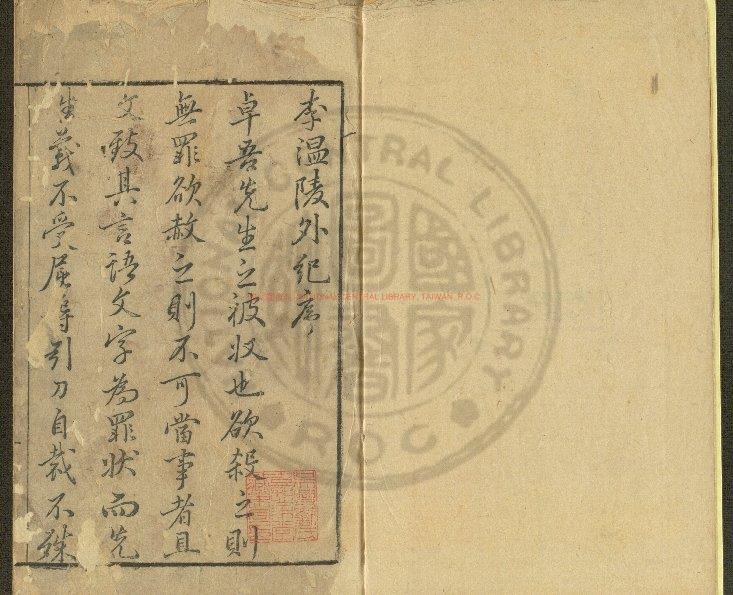 李溫陵外紀序
卓吾先生之被收也欲殺之則
無罪欲赦之則不可當事者且
文致其言語文字為罪狀而先
生義不受屈尋引刀自裁不殊
NATIONAL CENTRAL LIBRARY
國家圖書館
R.O.C
NATIONAL CENTRAL LIBRARY, TAIWAN, R.O.C